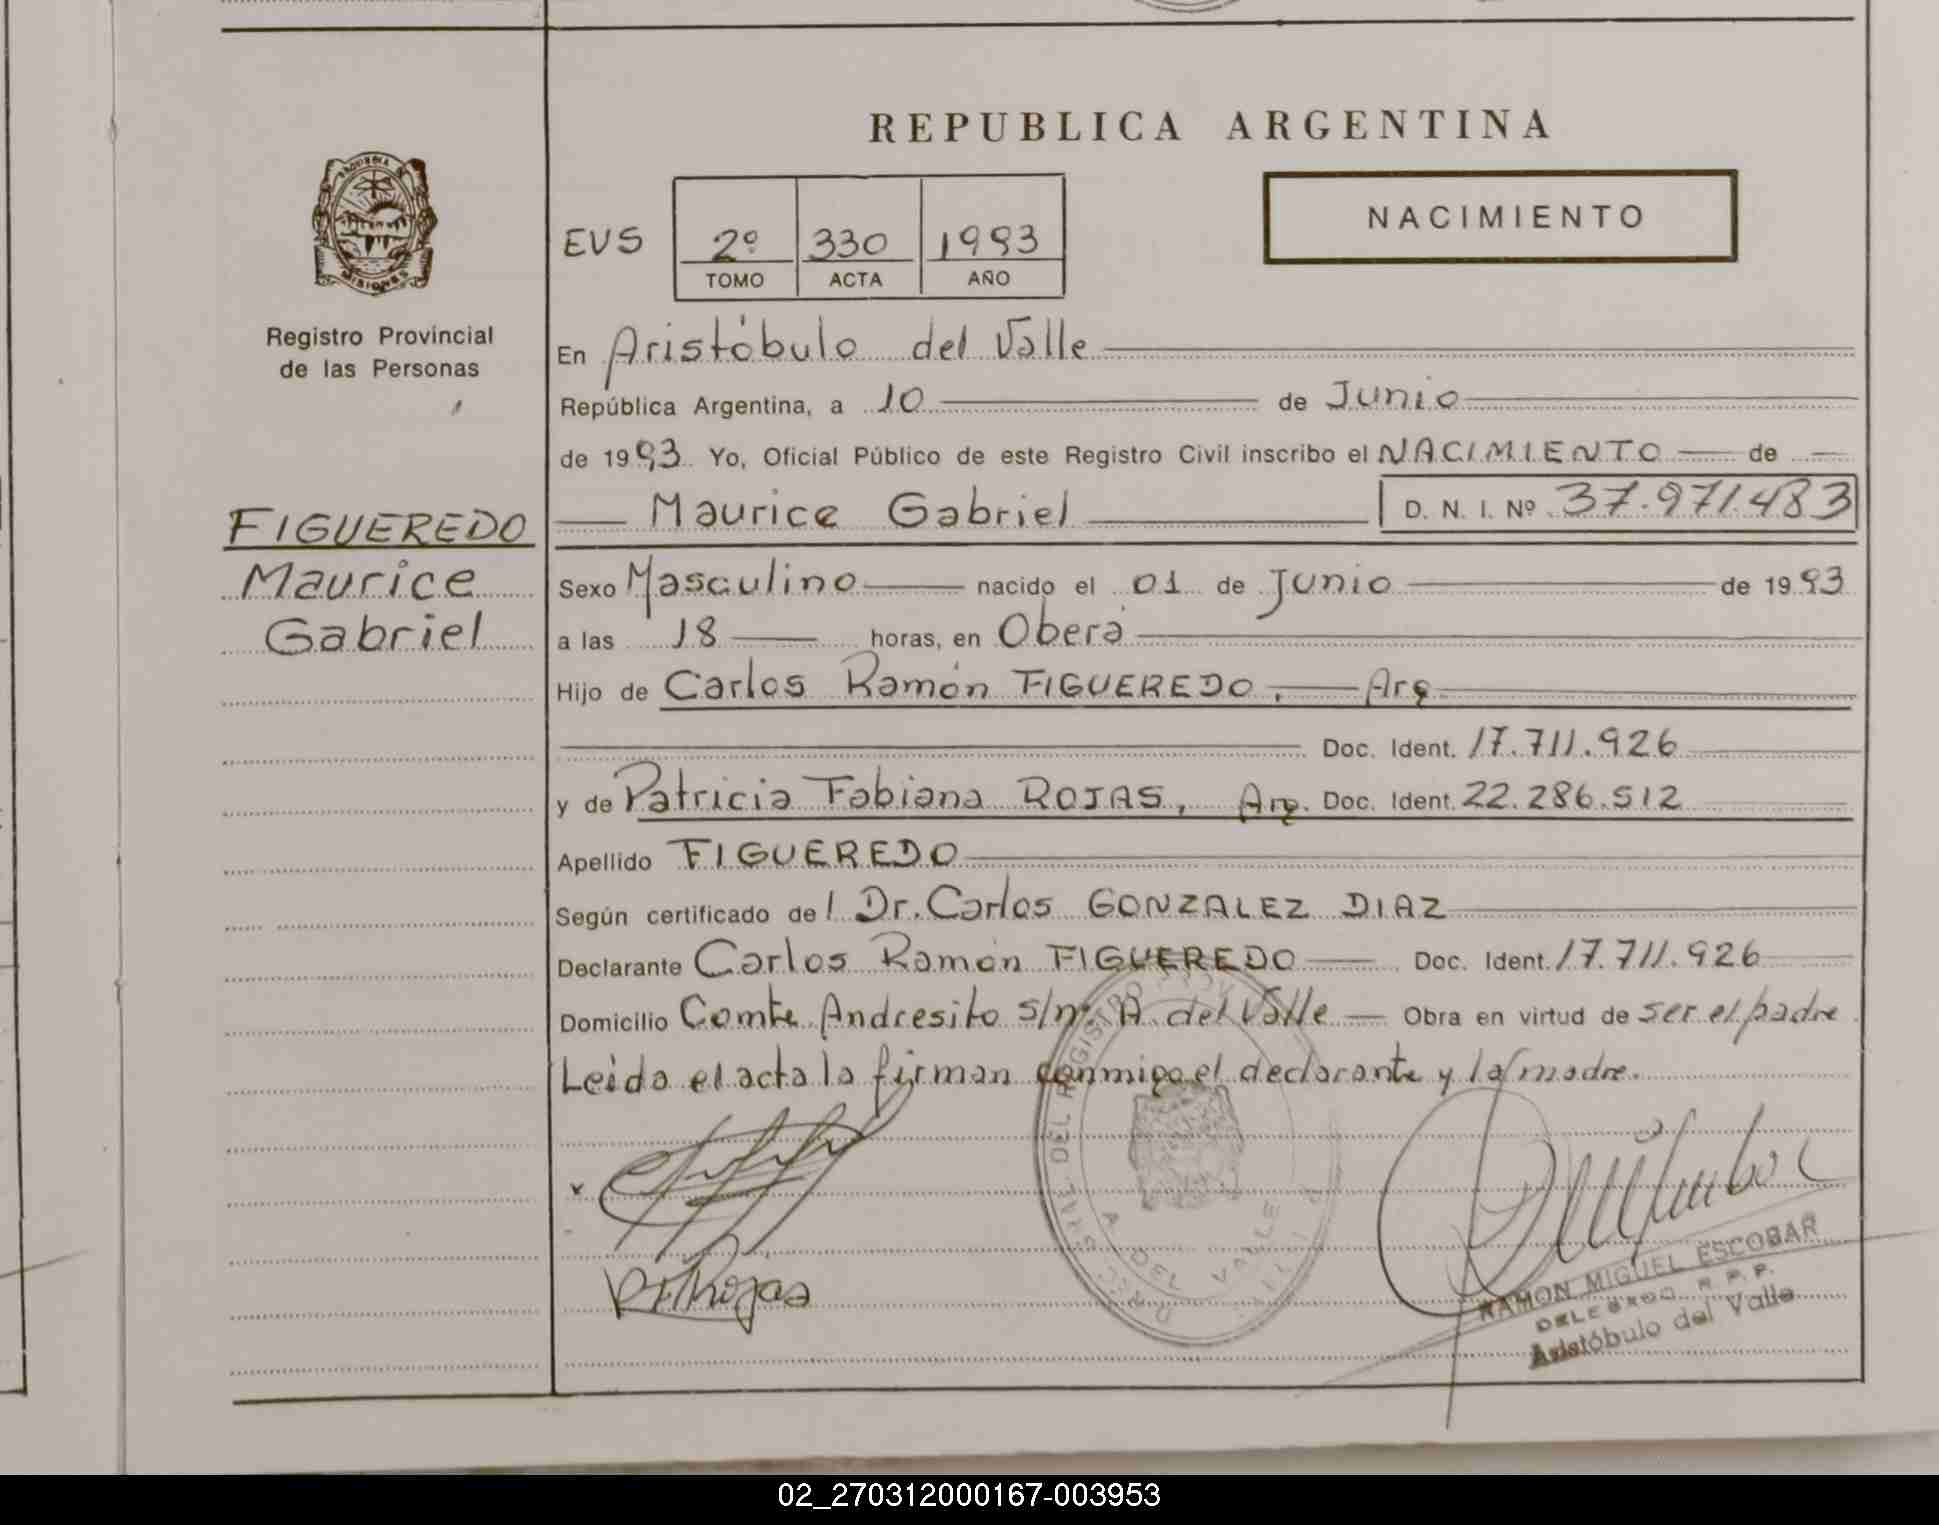 REPUBLICA ARGENTINA
NACIMIENTO
EVS 2º 330 1993
TOMO ACTA AÑO
PROVINCIA
MISIONES
Registro Provincial
de las Personas
FIGUEREDO
Maurice
Gabriel
En Aristóbulo del Valle
República Argentina, a 10 de Junio
de 1993 Yo, Oficial Público de este Registro Civil inscribo el NACIMIENTO de
Maurice Gabriel D. N. I. Nº 37.971.483
Sexo Masculino nacido el 01 de Junio de 1993
a las 18 horas, en Oberá
Hijo de Carlos Ramón FIGUEREDO, Arg.
Doc. Ident. 17.711.926
y de Patricia Fabiana ROJAS, Arg. Doc. Ident. 22.286.512
Apellido FIGUEREDO
Según certificado del Dr. Carlos GONZALEZ DIAZ
Declarante Carlos Ramón FIGUEREDO Doc. Ident. 17.711.926
Domicilio Comte. Andresito s/nº A. del Valle Obra en virtud de ser el padre
Leida el acta la firman conmigo el declarante y la madre.
DEL REGISTRO
A. DEL VALLE
P.F.Rojas
RAMON MIGUEL ESCOBAR
DELEGADO R. P. P.
Aristóbulo del Valle
02_270312000167-003953